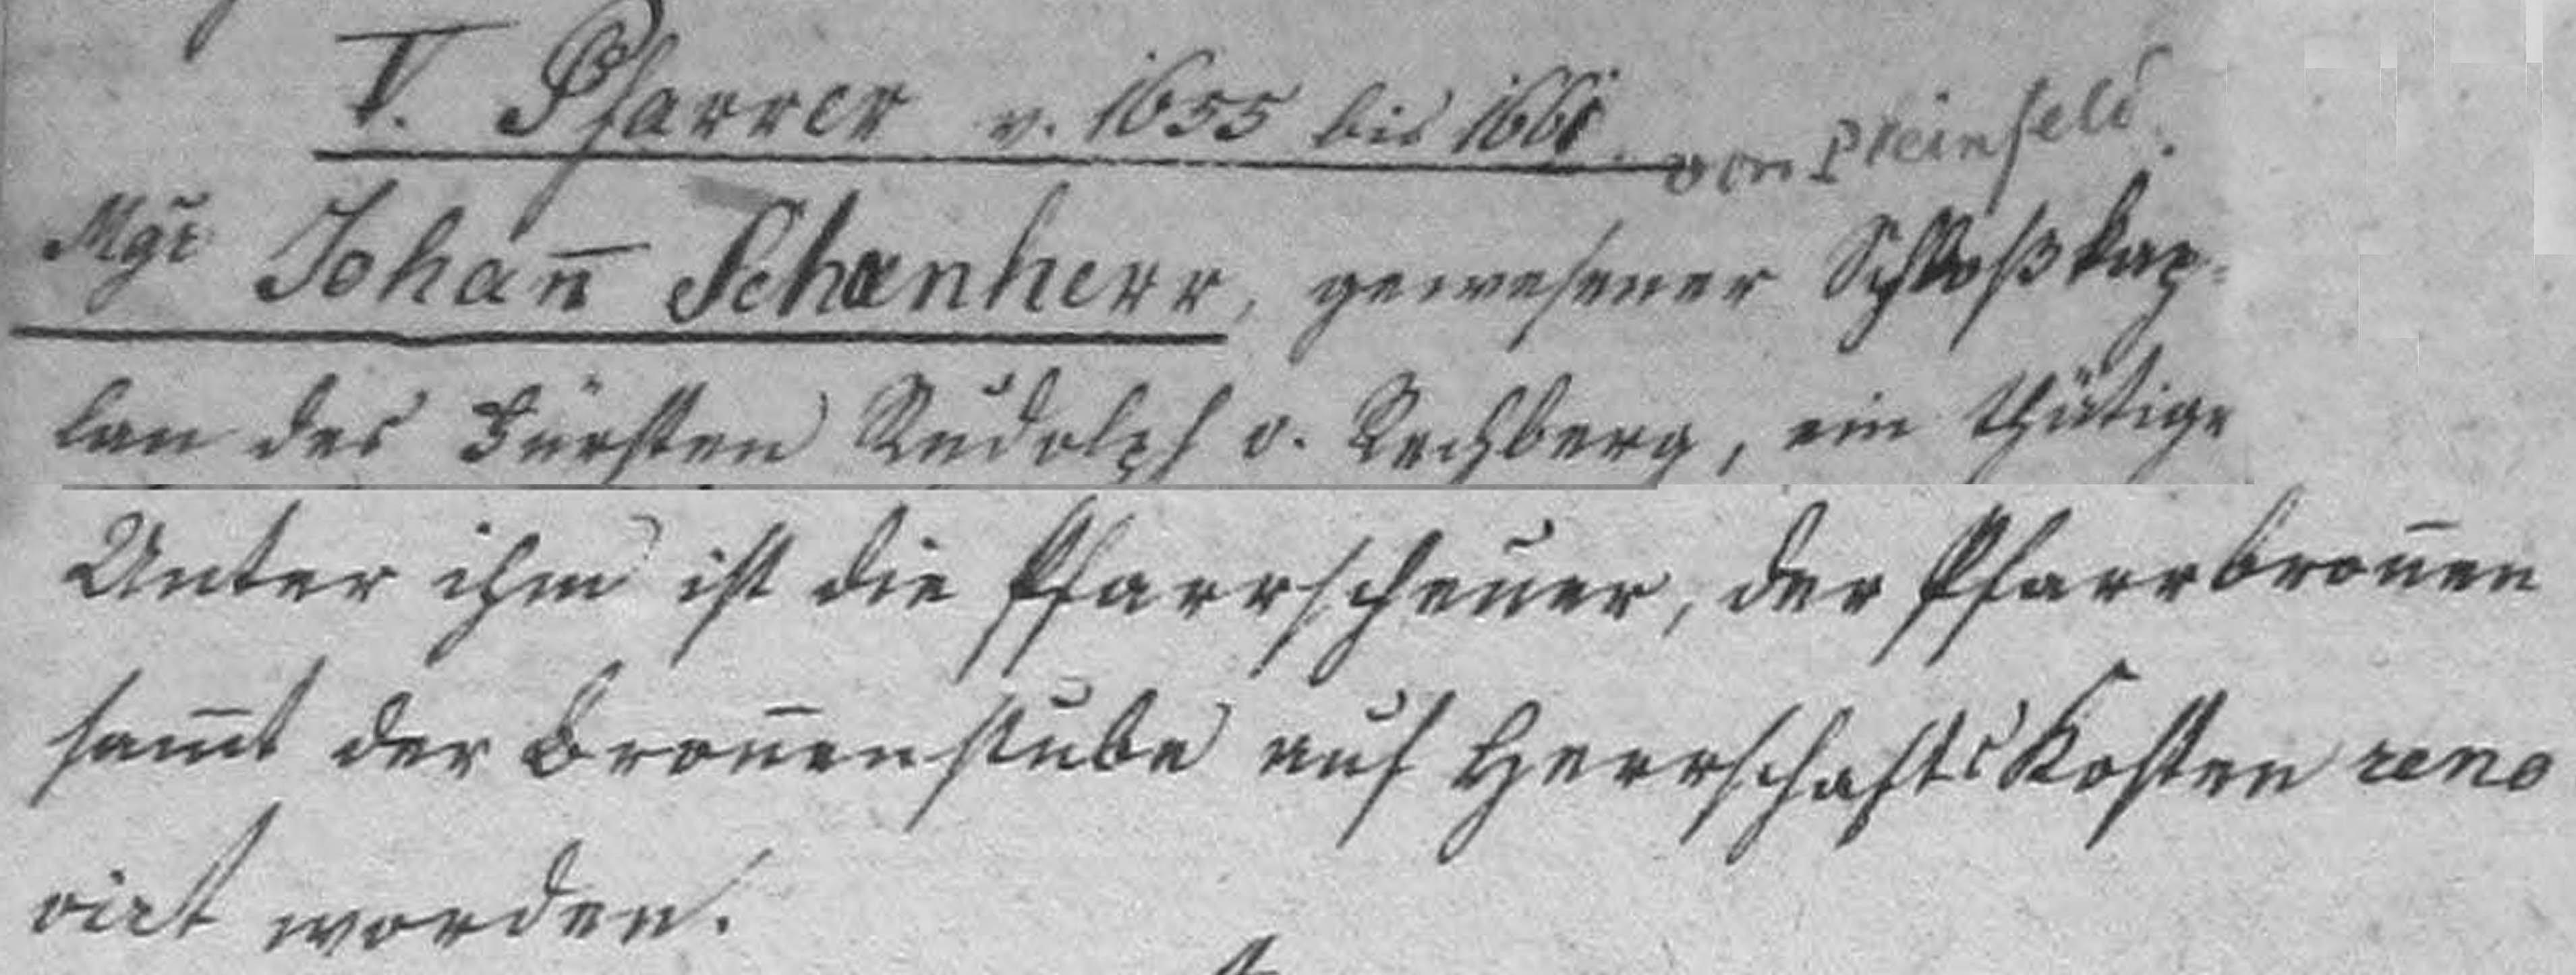 V. Pfarrer v. 1655 bis 1661. von Pleinfeld.
Mgr Johan̄ Schœnherr, gewesener Schloßkap-
lan des Fürsten Rudolph v. Rechberg, ein thätige
Unter ihm ist die Pfarrscheuer, der Pfarrbron̄en
sam̄t der Bron̄enstube auf Herrschafts Kosten reno
virt worden.